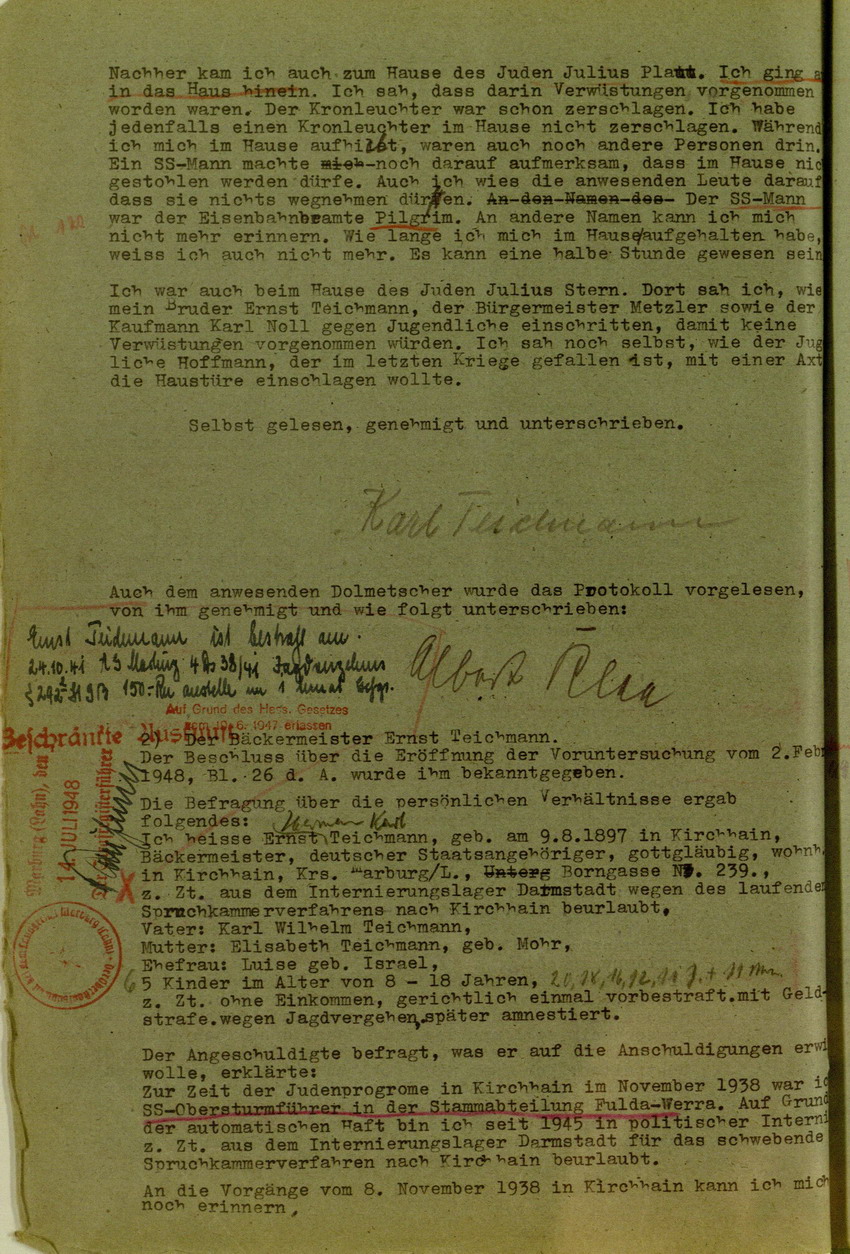 Nachher kam ich auch zum Hause des Juden Julius Platt. Ich ging a
in das Haus hinein. Ich sah, dass darin Verwüstungen vorgenommen
worden waren. Der Kronleuchter war schon zerschlagen. Ich habe
jedenfalls einen Kronleuchter im Hause nicht zerschlagen. Während
ich mich im Hause aufhielt, waren auch noch andere Personen drin.
Ein SS-Mann machte mich noch darauf aufmerksam, dass im Hause nic
gestohlen werden dürfe. Auch ich wies die anwesenden Leute darauf
dass sie nichts wegnehmen dürfen. An den Namen des Der SS-Mann
war der Eisenbahnbeamte Pilgrim. An andere Namen kann ich mich
nicht mehr erinnern. Wie lange ich mich im Hause aufgehalten habe,
weiss ich auch nicht mehr. Es kann eine halbe Stunde gewesen sein
Ich war auch beim Hause des Juden Julius Stern. Dort sah ich, wie
mein Bruder Ernst Teichmann, der Bürgermeister Metzler sowie der
Kaufmann Karl Noll gegen Jugendliche einschritten, damit keine
Verwüstungen vorgenommen würden. Ich sah noch selbst, wie der Jug
liche Hoffmann, der im letzten Kriege gefallen ist, mit einer Axt
die Haustüre einschlagen wollte.
Selbst gelesen, genehmigt und unterschrieben.
Karl Teichmann
Auch dem anwesenden Dolmetscher wurde das Protokoll vorgelesen,
von ihm genehmigt und wie folgt unterschrieben:
Ernst Teichmann ist bestraft am
24.10.41
150.-
Albert
Auf Grund des Hess. Gesetzes
1947 erlassen
Beschränkte Auskunft
2) Der Bäckermeister Ernst Teichmann.
Der Beschluss über die Eröffnung der Voruntersuchung vom 2.Feb
1948, Bl. 26 d. A. wurde ihm bekanntgegeben.
14. JULI 1948
Die Befragung über die persönlichen Verhältnisse ergab
folgendes: Karl
Ich heisse Ernst Teichmann, geb. am 9.8.1897 in Kirchhain,
Bäckermeister, deutscher Staatsangehöriger, gottgläubig, wohnh
in Kirchhain, Krs. Marburg/L., Unterg Borngasse Nr. 239.,
z. Zt. aus dem Internierungslager Darmstadt wegen des laufenden
Spruchkammerverfahrens nach Kirchhain beurlaubt,
Vater: Karl Wilhelm Teichmann,
Mutter: Elisabeth Teichmann, geb. Mohr,
Ehefrau: Luise geb. Israel,
5 Kinder im Alter von 8 - 18 Jahren,
z. Zt. ohne Einkommen, gerichtlich einmal vorbestraft.mit Geld-
strafe.wegen Jagdvergehen,später amnestiert.
Der Angeschuldigte befragt, was er auf die Anschuldigungen erwi
wolle, erklärte:
Zur Zeit der Judenprogrome in Kirchhain im November 1938 war ic
SS-Obersturmführer in der Stammabteilung Fulda-Werra. Auf Grund
der automatischen Haft bin ich seit 1945 in politischer Interni
z. Zt. aus dem Internierungslager Darmstadt für das schwebende
Spruchkammerverfahren nach Kirchhain beurlaubt.
An die Vorgänge vom 8. November 1938 in Kirchhain kann ich mich
noch erinnern,